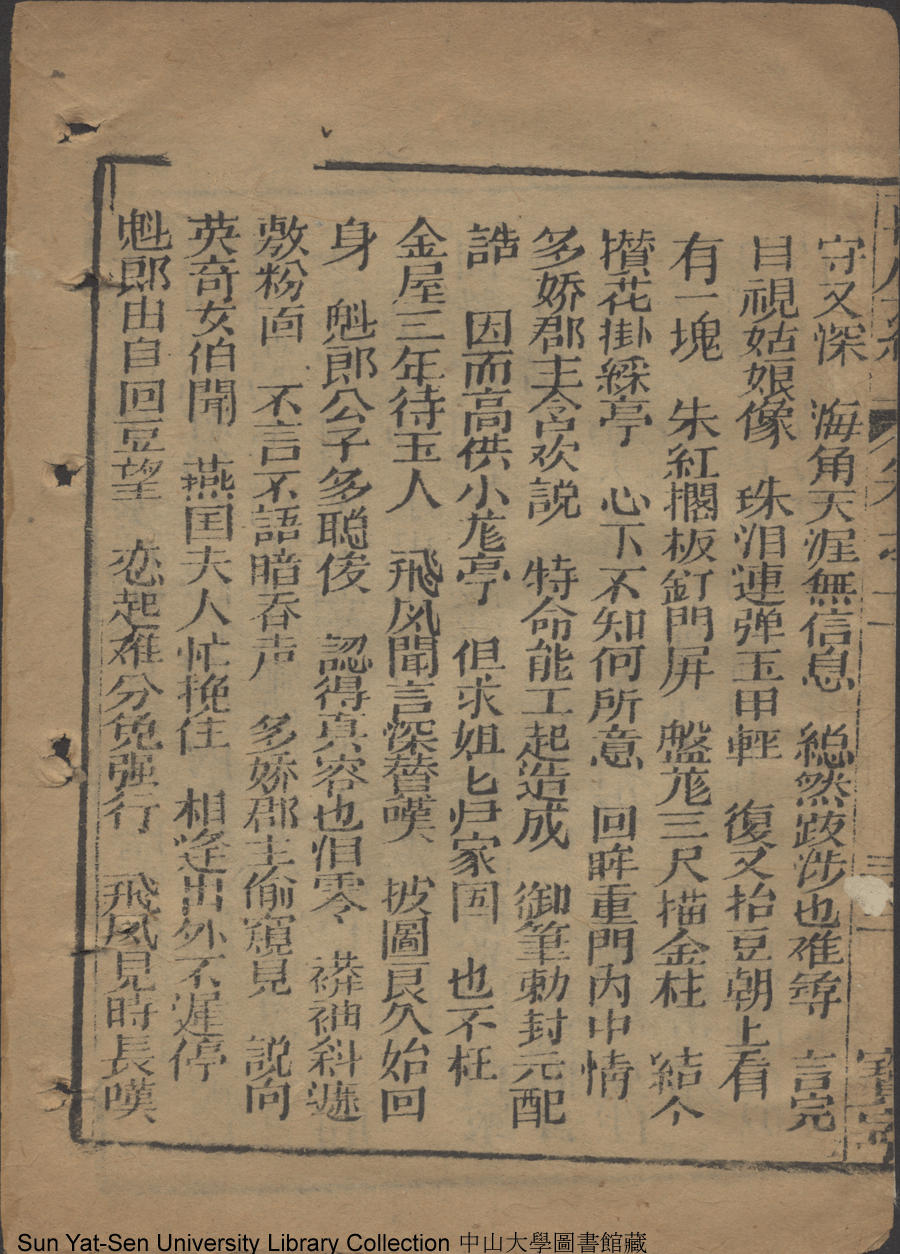 守又深　海角天涯無信息　緫然跋涉也难尋　言完
目視姑娘像　珠泪漣弹玉甲輕　復又抬豆朝上看
有一塊　朱紅擱板釘門屏　盤尨三尺描金柱　結个
攅花掛綵亭　心下不知何所意　回眸重門内中情
多娇郡主含欢説　特命能工起造成　御筆勅封元配
誥　因而高供小尨亭　但求姐匕归家囯　也不枉
金屋三年待玉人　飛凤聞言深替嘆　披圖良久始回
身　魁郎公子多聪俊　認得真容也泪零　袴袖斜遮
敷粉面　不言不語暗吞声　多娇郡主偷窺見　説向
英奇女伯聞　燕囯夫人忙挽住　相逢出外不遲停
魁郎由自回豆望　恋起难分免强行　飛凤見時長嘆
Sun Yat-Sen University Library Collection 中山大學圖書館藏